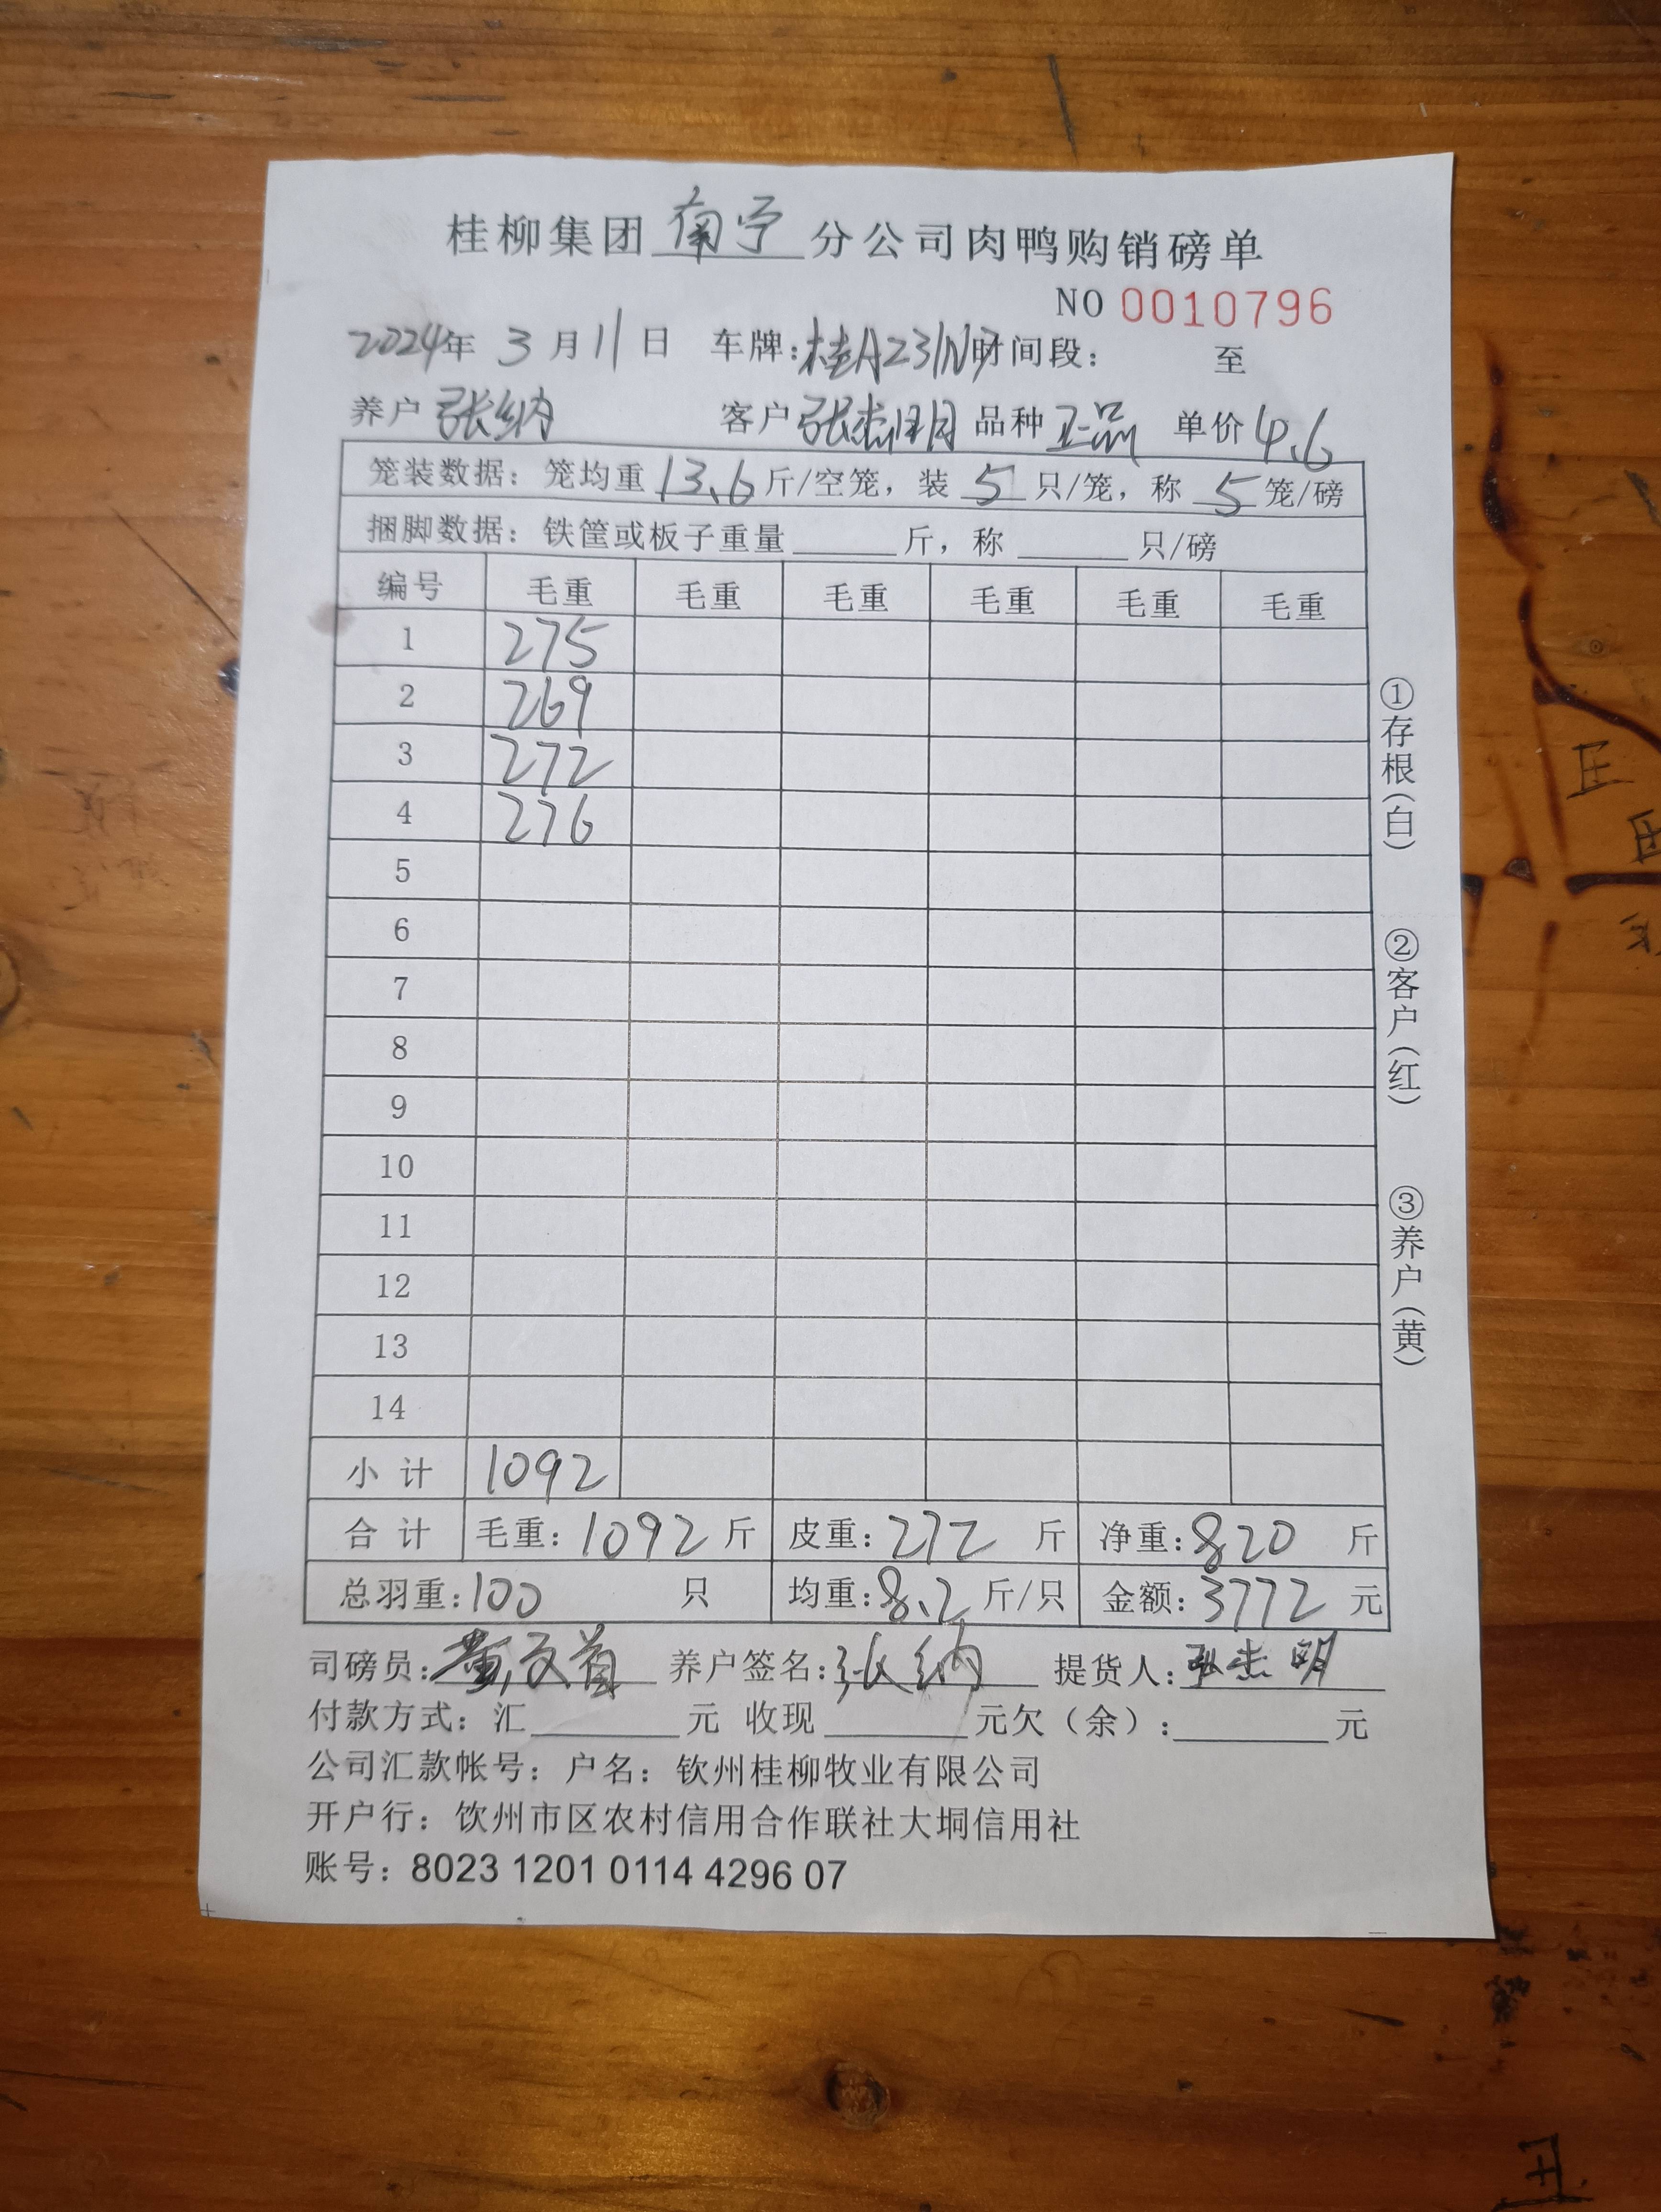 桂柳集团南宁分公司肉鸭购销磅单
NO 0010796
2024年 3月11日 车牌:桂A231N7 时间段: 至
养户 张纳 客户 张杰明 品种 正品 单价 4.6
笼装数据: 笼均重 13.6 斤/空笼, 装 5 只/笼, 称 5 笼/磅
捆脚数据: 铁筐或板子重量______斤, 称______只/磅
编号 毛重 毛重 毛重 毛重 毛重 毛重
1 275
2 269
3 272
4 276
5
6
7
8
9
10
11
12
13
14
小计 1092
合计 毛重: 1092 斤 皮重: 272 斤 净重: 820 斤
总羽重: 100 只 均重: 8.2 斤/只 金额: 3772 元
司磅员: 养户签名: 张纳 提货人: 张杰明
付款方式: 汇______元 收现______元欠(余):______元
公司汇款帐号: 户名: 钦州桂柳牧业有限公司
开户行: 饮州市区农村信用合作联社大垌信用社
账号: 8023 1201 0114 4296 07
①存根(白)
②客户(红)
③养户(黄)